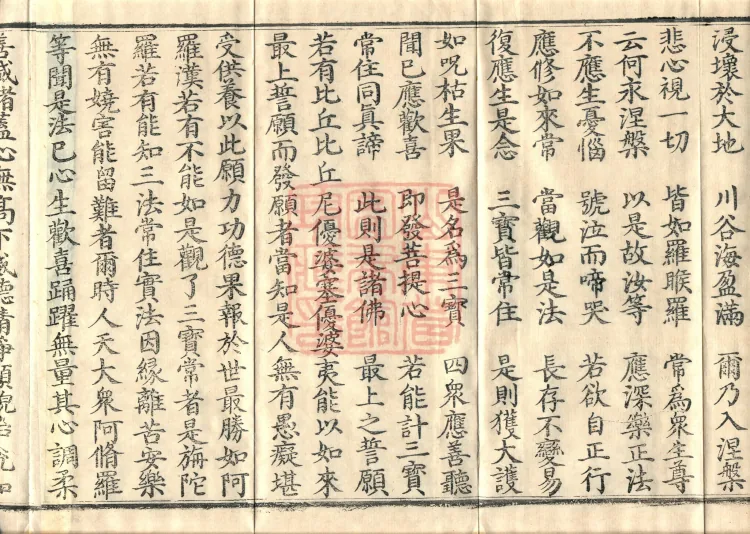 浸壞於大地　川谷海盈滿　爾乃入涅槃
悲心視一切　皆如羅睺羅　常為衆生尊
云何永涅槃　以是故汝等　應深樂正法
不應生憂惱　號泣而啼哭　若欲自正行
應修如來常　當觀如是法　長存不變易
復應生是念　三寶皆常住　是則獲大護
如呪枯生果　是名爲三寶　四衆應善聽
聞已應歡喜　即發菩提心　若能計三寶
常住同真諦　此則是諸佛　最上之誓願
若有比丘比丘尼優婆塞優婆夷能以如來
最上誓願而發願者當知是人無有愚癡堪
受供養以此願力功德果報於世最勝如阿
羅漢若有不能如是觀了三寶常者是旃陀
羅若有能知三法常住實法因緣離苦安樂
無有嬈害能留難者爾時人天大衆阿脩羅
等聞是法已心生歡喜踊躍無量其心調柔
善滅諸蓋心無高下威德清淨顏貌怡悅知